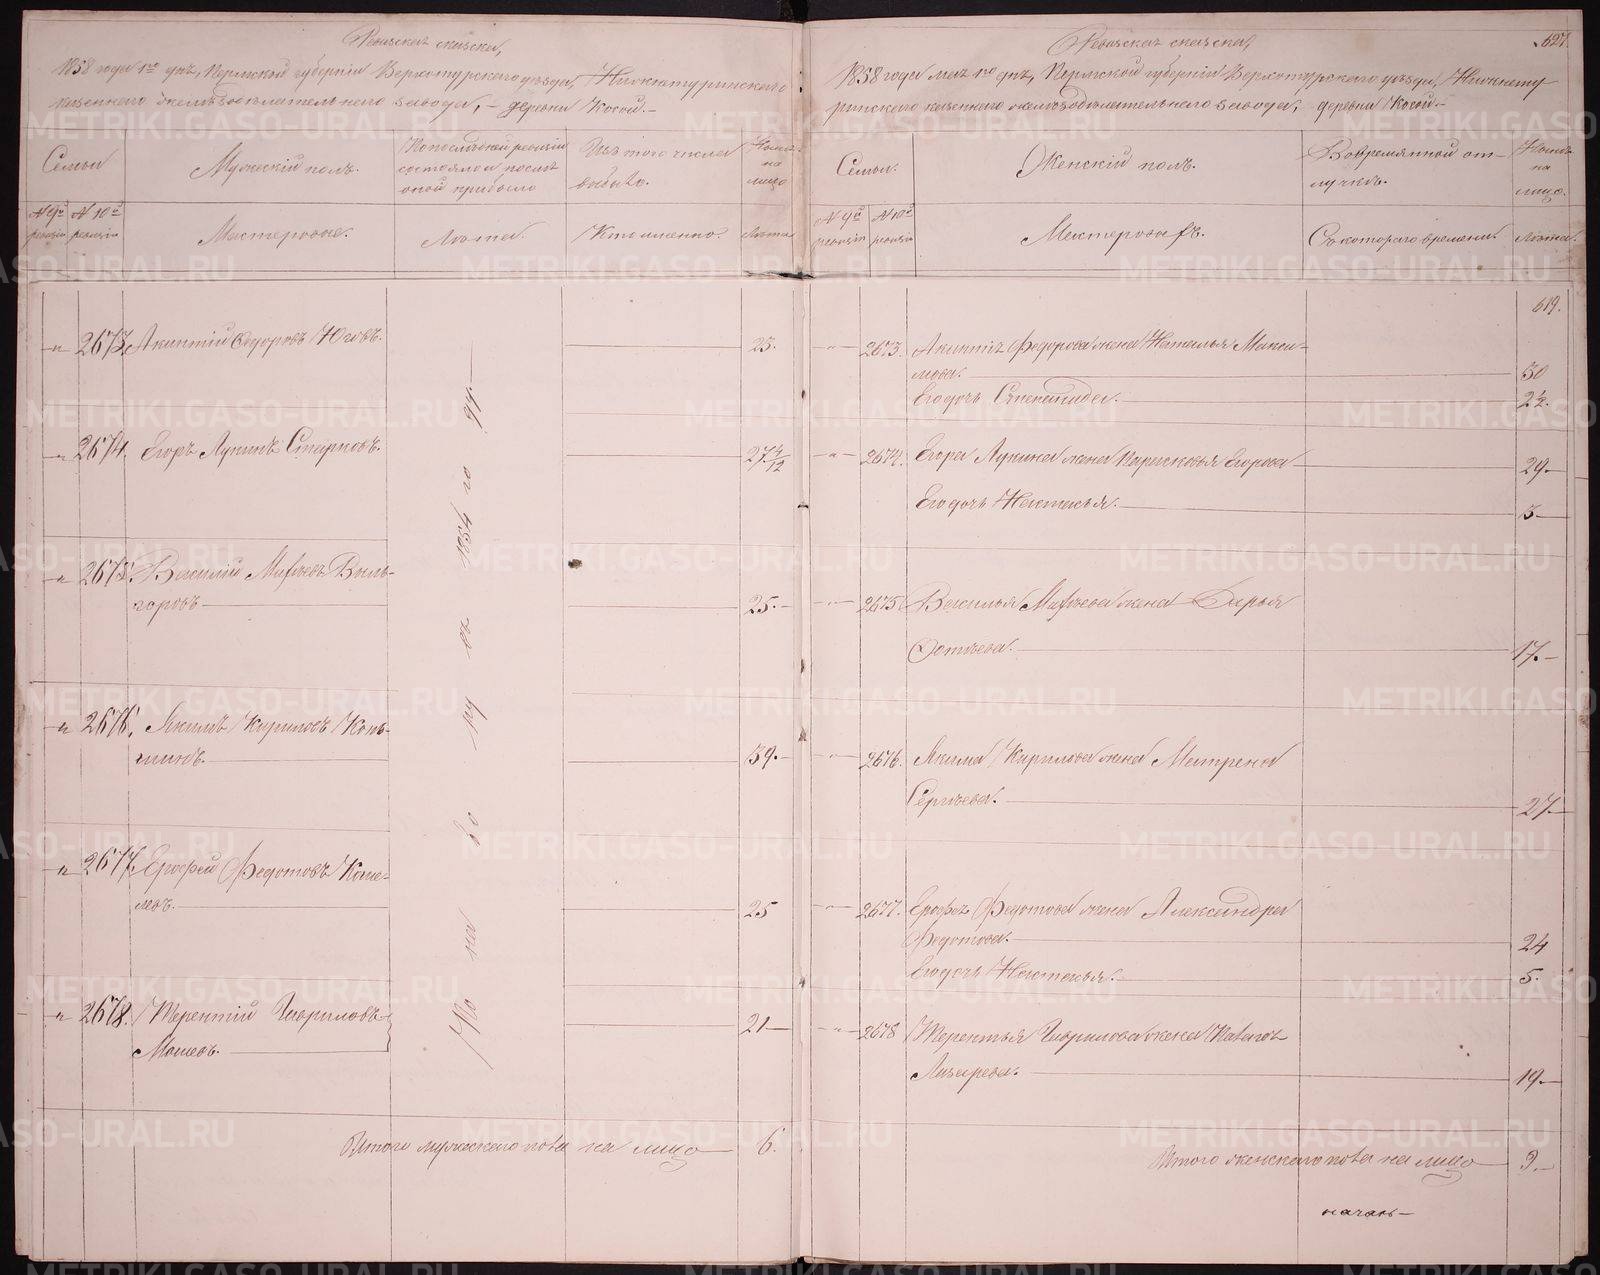 Ревизская сказка,
1858 года 1го дня, Пермской губернiи Верхотурского уѣзда, Нижнетуринского
казенного желѣзодѣлательного завода, – деревни Косой. –
Семьи
Мужескiй полъ.
По последней ревизiи
состояло и после
оной прибыло
Изъ того числа
выбыло.
Ныне
на
лицо
№ 9й
ревизiи
№ 10й
ревизiи
Мастеровые.
Лѣта.
Кто именно.
Лѣта
2673. Акинтiй Федоровъ Юговъ. 23.
2674. Егоръ Лукинъ Старковъ. 27 4/12
2675. Василiй Матвѣевъ Выль-
горовъ 25.–
2676. Якимъ Кириловъ Конь-
шинъ. 39.–
2677. Ерофей Федотовъ Коше-
левъ. 25
2678. Терентiй Гавриловъ
Мошевъ. 21–
1854 го
Итого мужеского пола на лицо 6.
627.
Ревизская сказка,
1858 года мая 1го дня, Пермской губернiи Верхотурского уѣзда, Нижнету
ринского казенного желѣзодѣлательного завода, деревни Косой. –
Семьи.
Женскiй полъ.
Во временной от-
лучкѣ.
Ныне
на
лицо.
№ 9й
ревизiи
№ 10й
ревизiи
Мастеровыхъ.
Съ которого времени.
Лѣта.
619.
2673. Акинтiя Федорова жена Наталья Макси-
мова. 30
Его дочь Степанида. 2 1/2.
2674. Егора Лукина жена Парасковья Егорова 29.–
Его дочь Настасья. 3.–
2675. Василья Матвѣева жена Дарья
Фотiева. 17.–
2676. Якима Кирилова жена Матрена
Сергѣева. 27.–
2677. Ерофея Федотова жена Александра
Федотова. 24
Его дочь Настасья. 5.
2678 Терентья Гаврилова жена
Лазарева. 19.–
Итого женского пола на лицо 9.–
METRIKI.GASO-URAL.RU